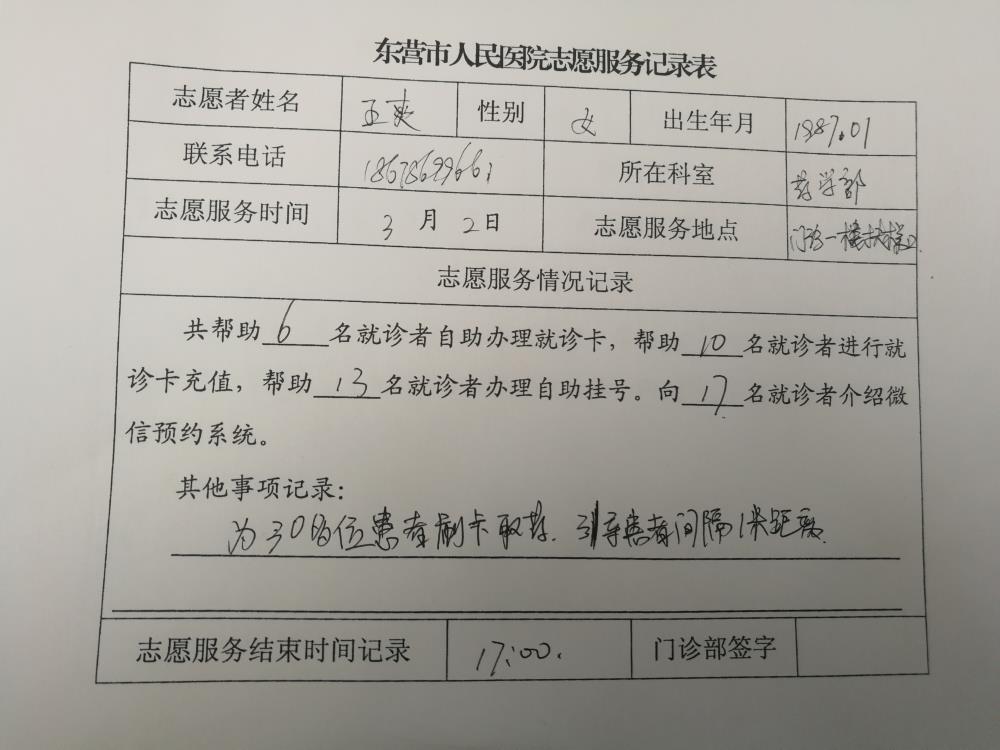 东营市人民医院志愿服务记录表
志愿者姓名 王爽 性别 女 出生年月 1987.01
联系电话 18678699661 所在科室 药学部
志愿服务时间 3月2日 志愿服务地点 门诊一楼
志愿服务情况记录
共帮助6名就诊者自助办理就诊卡，帮助10名就诊者进行就
诊卡充值，帮助13名就诊者办理自助挂号。向17名就诊者介绍微
信预约系统。
其他事项记录：
为30多位患者刷卡取药.引导患者间隔1米距离.
志愿服务结束时间记录 17:00. 门诊部签字